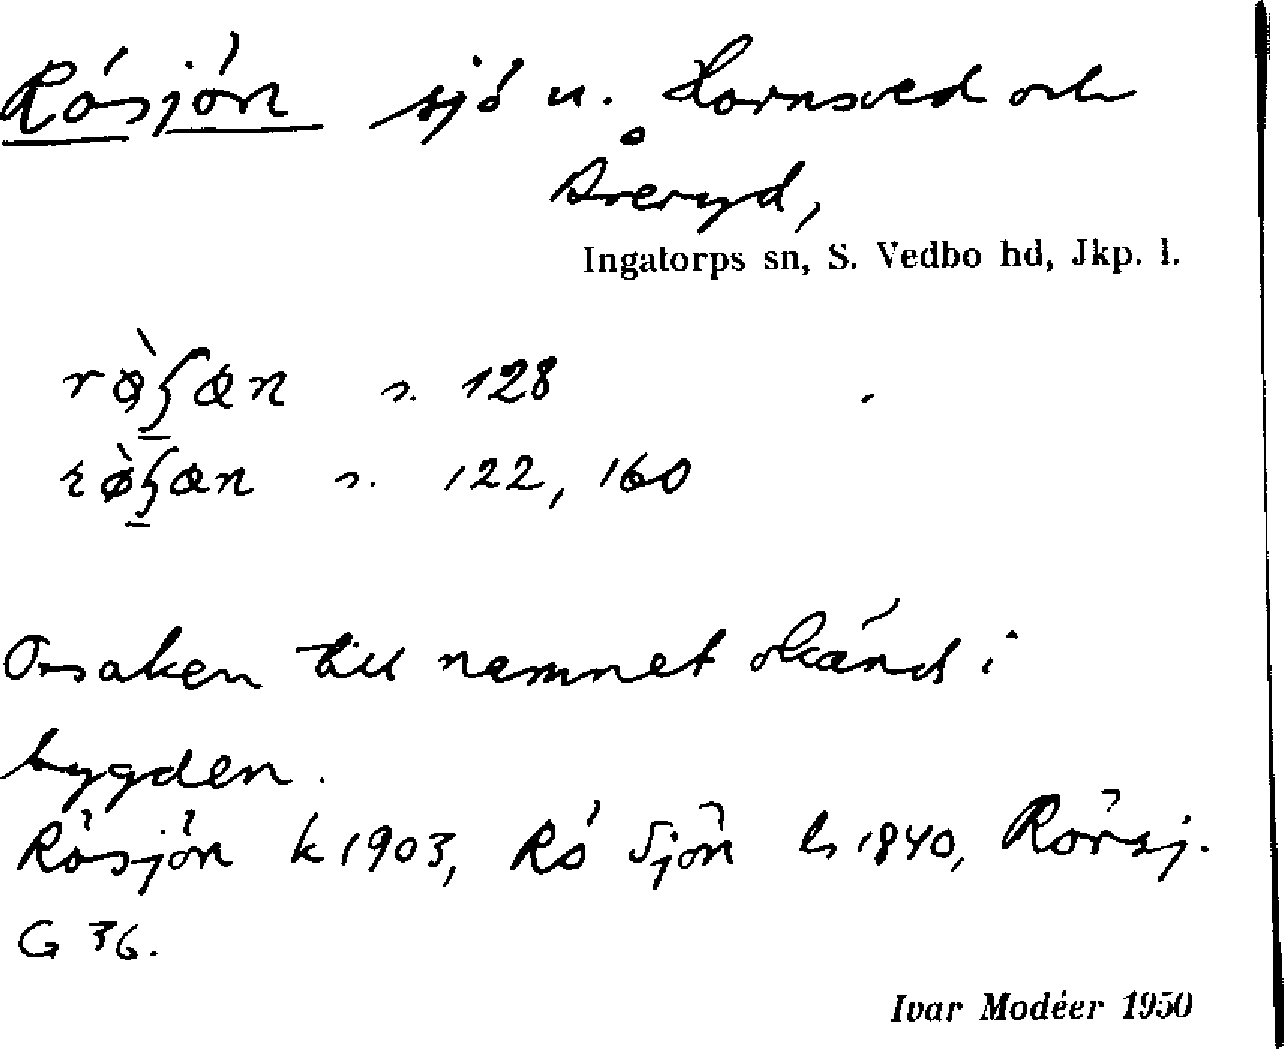 Rösjön sjö u. Hornsved och
Åreryd,
Ingatorps sn, S. Vedbo hd, Jkp. l.
s. 128
s. 122, 160
Orsaken till namnet okänd i
bygden.
Rösjön k 1903, Rö Sjön ls 1840, Rörsj.
G 36.
Ivar Modéer 1950